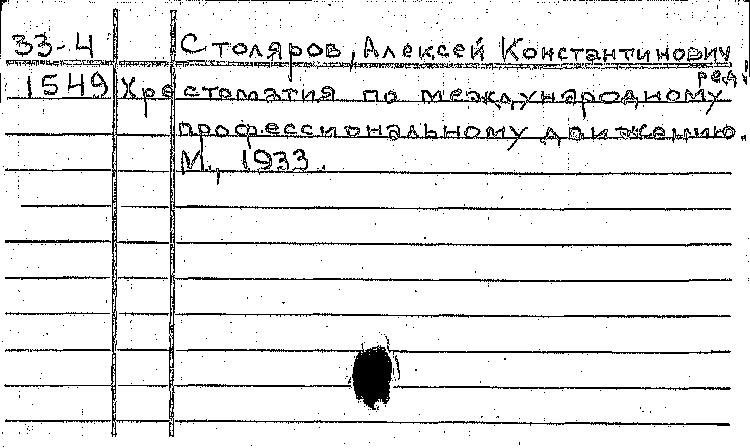 33-4 Столяров, Алексей Константинович
ред.
1549 Хрестоматия по международному
профессиональному движению.
М., 1933.